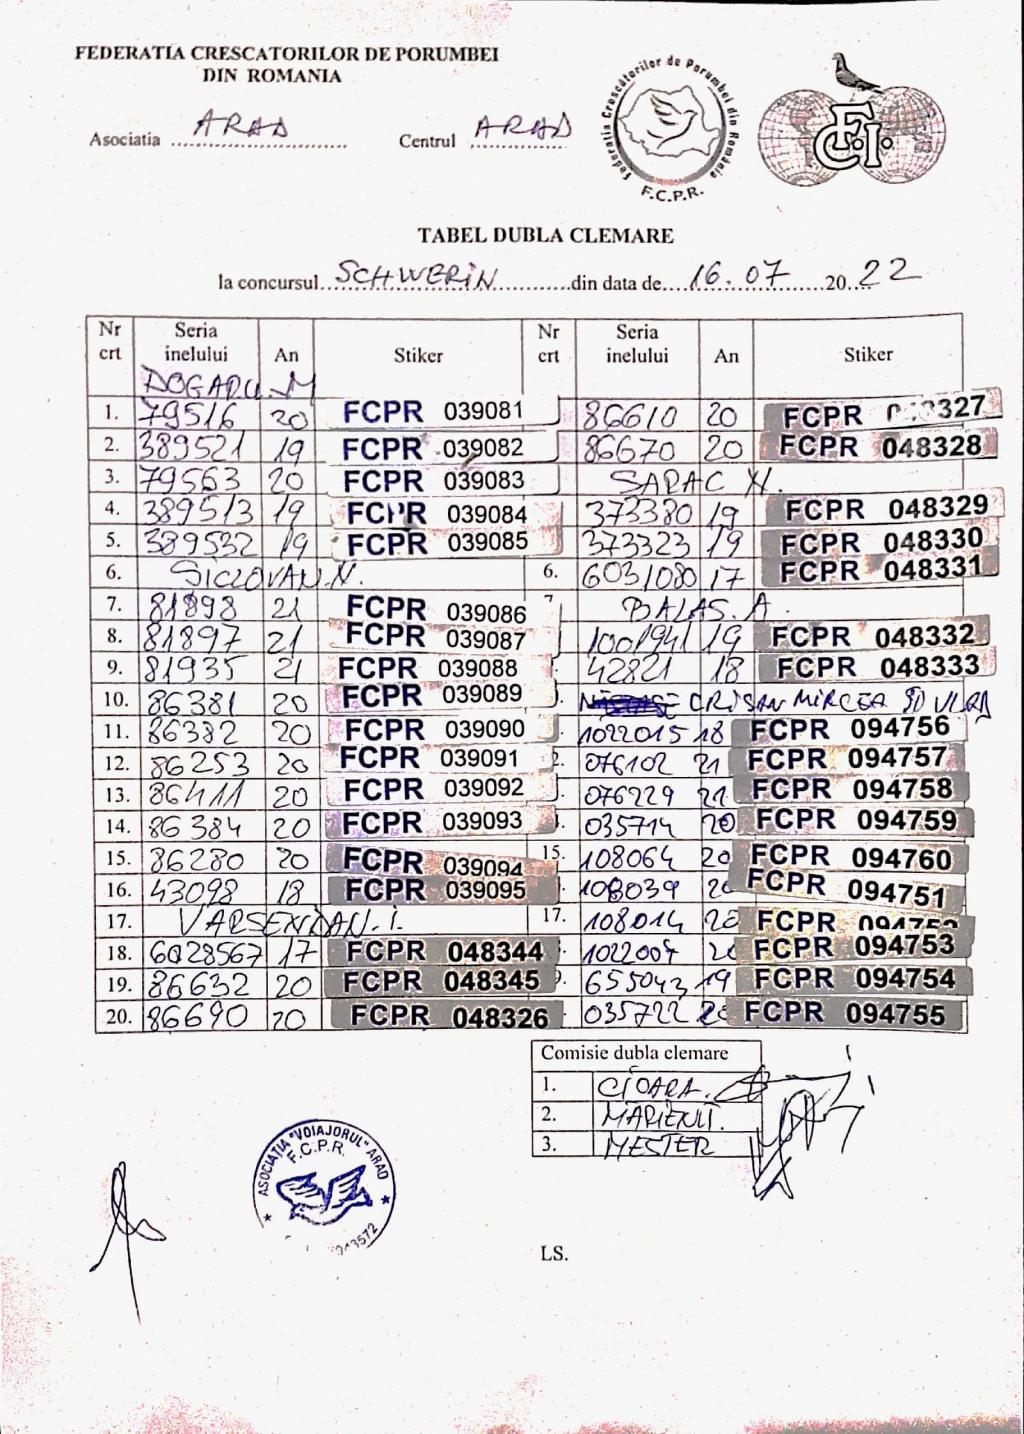 FEDERATIA CRESCATORILOR DE PORUMBEI
DIN ROMANIA
Asociatia ARAD Centrul ARAD
Federatia Crescătorilor de Porumbei din România
F.C.P.R.
F.C.I.
TABEL DUBLA CLEMARE
la concursul SCHWERIN din data de 16.07 2022
Nr crt Seria inelului An Stiker Nr crt Seria inelului An Stiker
DOGARU. M
1. 79516 20 FCPR 039081 86610 20 FCPR 048327
2. 389521 19 FCPR 039082 86670 20 FCPR 048328
3. 79563 20 FCPR 039083 SAPAC N.
4. 389513 19 FCPR 039084 373380 19 FCPR 048329
5. 389532 19 FCPR 039085 373323 19 FCPR 048330
6. SICLOVAN. N. 6. 6031080 17 FCPR 048331
7. 81898 21 FCPR 039086 7 BALAS. A.
8. 81897 21 FCPR 039087 1001941 19 FCPR 048332
9. 81935 21 FCPR 039088 42821 18 FCPR 048333
10. 86381 20 FCPR 039089 CRISAN MIRCEA SI VLAD
11. 86382 20 FCPR 039090 1022015 18 FCPR 094756
12. 86253 20 FCPR 039091 2. 076102 21 FCPR 094757
13. 86411 20 FCPR 039092 076229 21 FCPR 094758
14. 86384 20 FCPR 039093 035714 20 FCPR 094759
15. 86280 20 FCPR 039094 15. 108064 20 FCPR 094760
16. 43098 18 FCPR 039095 108039 20 FCPR 094751
17. VARSENDAN. I. 17. 108014 20 FCPR 094752
18. 6028567 17 FCPR 048344 1022007 FCPR 094753
19. 86632 20 FCPR 048345 9. 655043 19 FCPR 094754
20. 86690 20 FCPR 048326 035722 20 FCPR 094755
Comisie dubla clemare
1. CIOARA.
2. MARIENUT.
3. MESTER
ASOCIATIA "VOIAJORUL" ARAD
F.C.P.R.
LS.